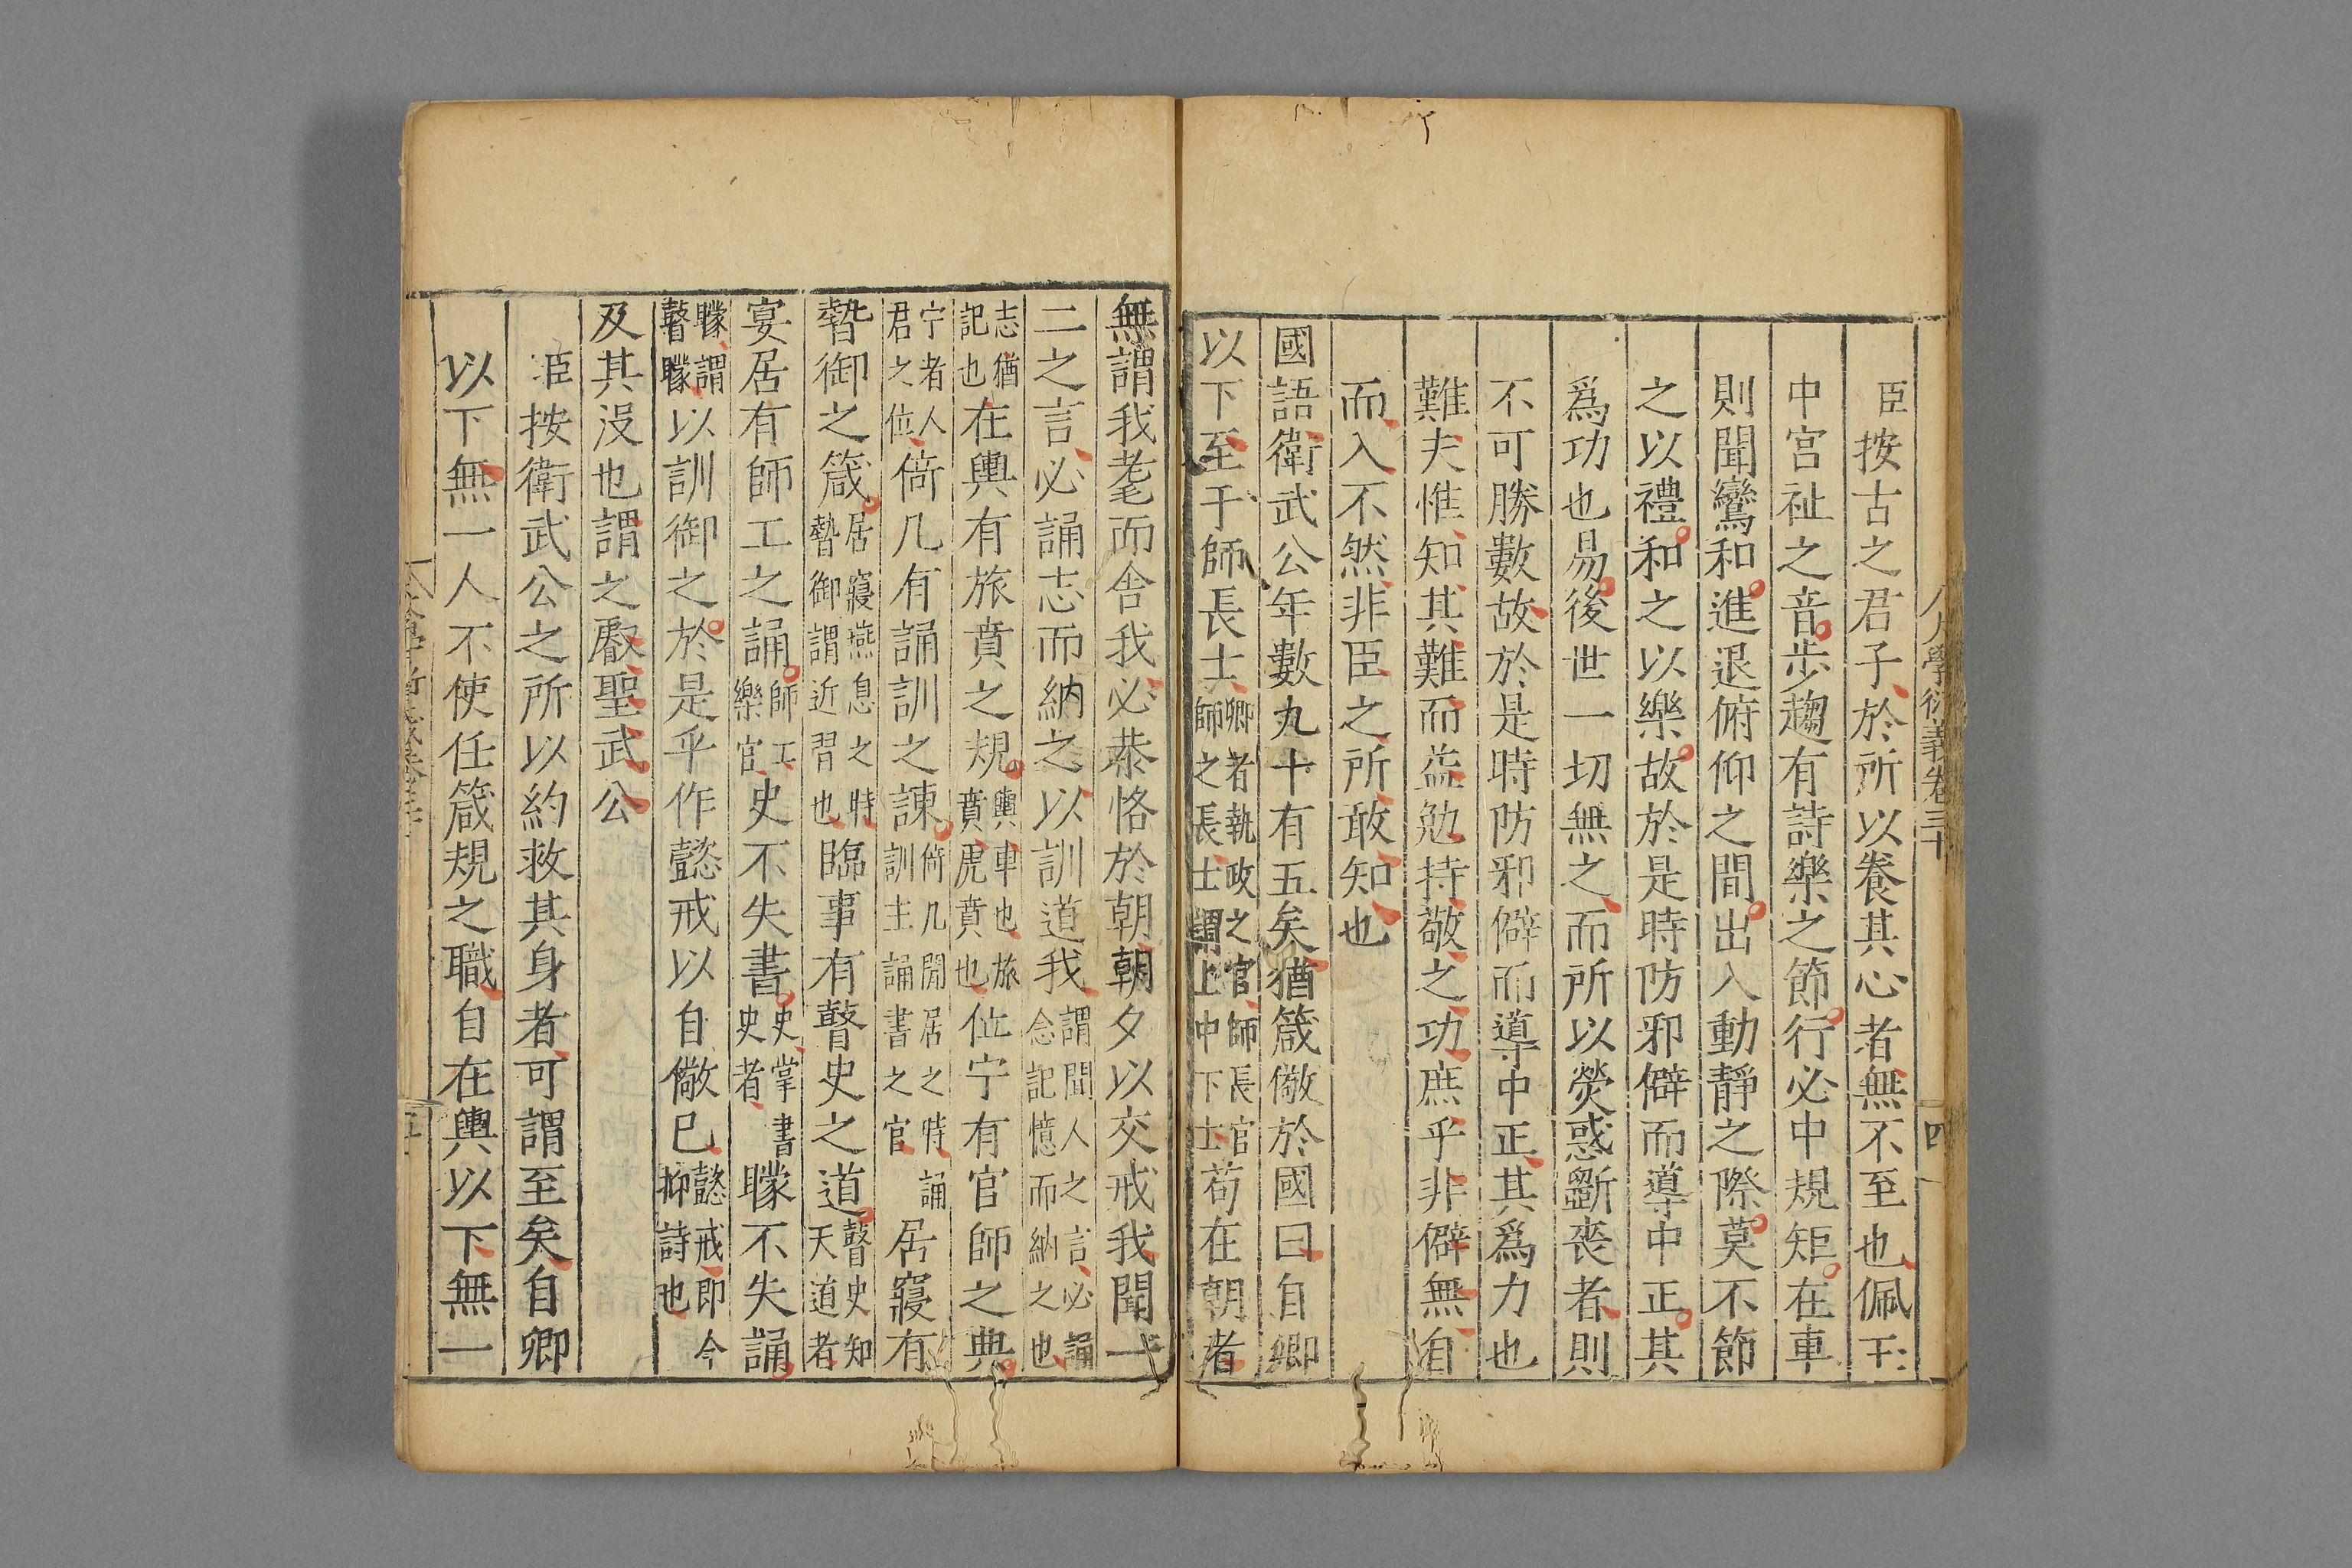 大學衍義卷三十　四
臣按古之君子於所以養其心者無不至也佩玉
中宮祉之音步趨有詩樂之節行必中規矩在車
則聞鸞和進退俯仰之間出入動靜之際莫不節
之以禮和之以樂故於是時防邪僻而導中正其
爲功也易後世一切無之而所以熒惑斵喪者則
不可勝數故於是時防邪僻而導中正其爲力也
難夫惟知其難而益勉持敬之功庶乎非僻無自
而入不然非臣之所敢知也
國語衛武公年數九十有五矣猶箴儆於國曰自卿
以下至于師長士卿者執政之官師長官師之長士謂上中下士苟在朝者
無謂我耄而舍我必恭恪於朝朝夕以交戒我聞一
二之言必誦志而納之以訓道我謂聞人之言必誦念記憶而納之也
志猶記也在輿有旅賁之規輿車也旅賁虎賁也位宁有官師之典
宁者人君之位倚几有誦訓之諫倚几閒居之時誦訓主誦書之官居寢有
暬御之箴居寢燕息之時暬御謂近習也臨事有瞽史之道瞽史知天道者
宴居有師工之誦師工樂官史不失書史掌書史者矇不失誦
矇謂瞽矇以訓御之於是乎作懿戒以自儆已懿戒即今抑詩也
及其沒也謂之叡聖武公
臣按衛武公之所以約救其身者可謂至矣自卿
以下無一人不使任箴規之職自在輿以下無一